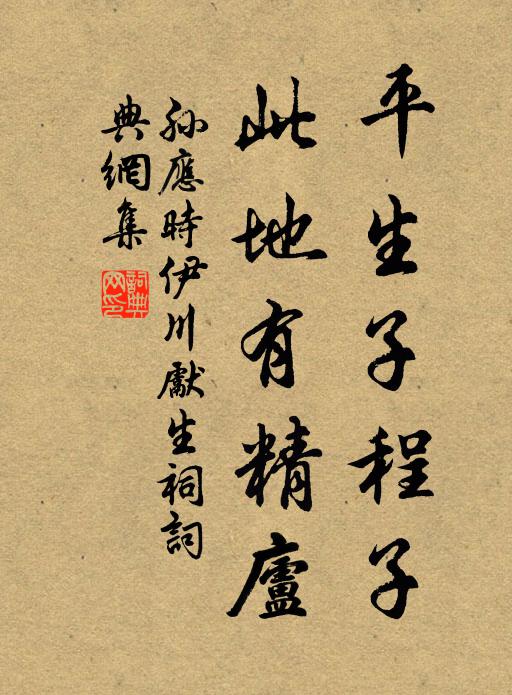 平生子程子
此地有精廬
孫應時伊川獻生祠詞
典網集
詞典網印